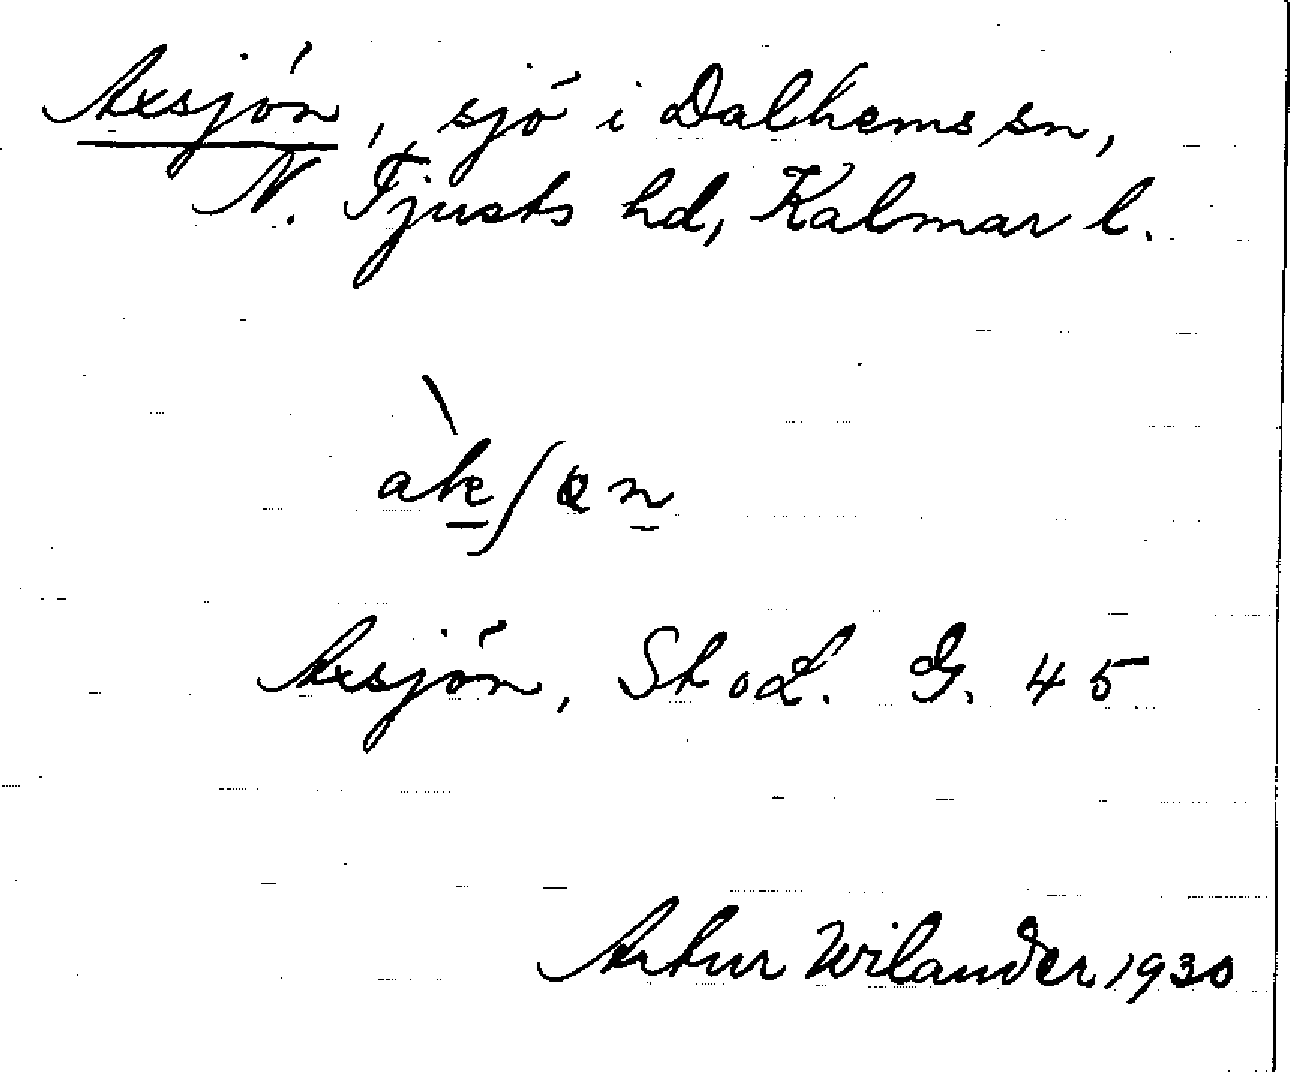 Axsjön, sjö i Dalhems sn,
N. Tjusts hd, Kalmar l.
Axsjön, Sk o L. G. 45
Artur Wilander 1930